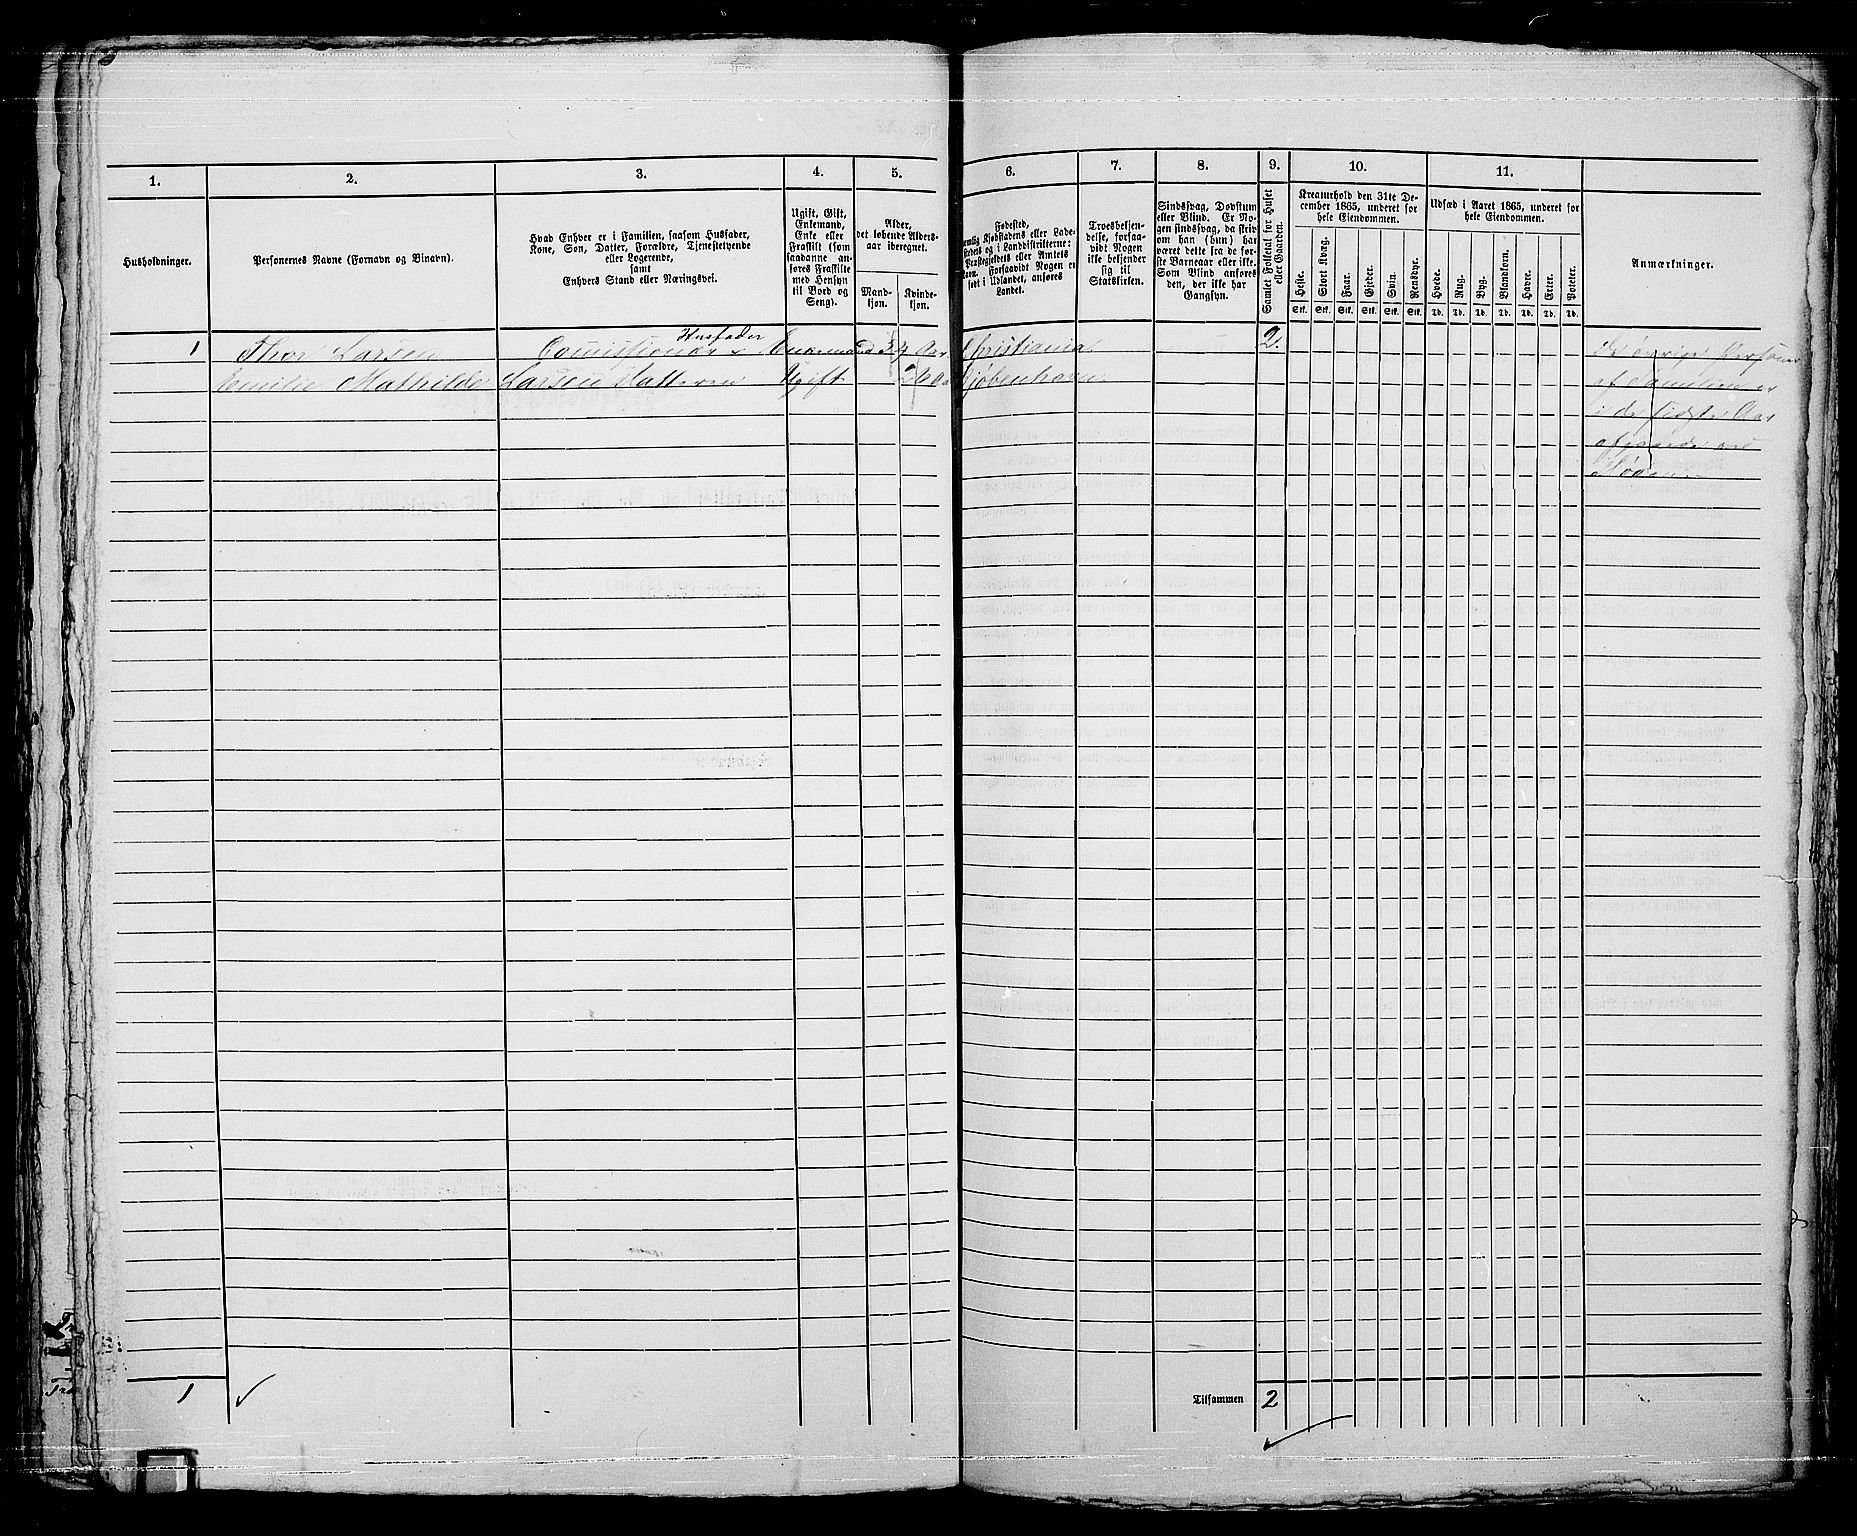 1. 2. 3. 4. 5. 6. 7. 8. 9. 10. 11.
Husholdninger.
Personernes Navne (Fornavn og Binavn).
Hvad Enhver er i Familien, saasom Husfader,
Kone, Søn, Datter, Forældre, Tjenestetyende
eller Logerende,
samt
Enhvers Stand eller Næringsvei.
Ugift, Gift,
Enkemand,
Enke eller
Fraskilt (som
saadanne an-
føres Fraskilte
med Hensyn
til Bord og
Seng).
Alder,
det løbende Alders-
aar iberegnet.
Mand-
kjøn.
Kvinde-
kjøn.
Fødested,
nemlig Kjøbstadens eller Lade-
stedets og i Landdistrikterne:
Præstegjeldets eller Amtets
Navn. Forsaavidt Nogen er
født i Udlandet, anføres
Landet.
Troesbekjen-
delse, forsaa-
vidt Nogen
ikke bekjender
sig til
Statskirken.
Sindssvag, Døvstum
eller Blind. Er No-
gen sindssvag, da skriv
om han (hun) har
været dette fra de før-
ste Barneaar eller ikke.
Som Blind anføres
den, der ikke har
Gangsyn.
Samlet Folketal for Huset
eller Gaarden.
Kreaturhold den 31te De-
cember 1865, underet for
hele Eiendommen.
Heste. Stort Kvæg. Faar. Gjeder. Svin. Rensdyr.
Stk. Stk. Stk. Stk. Stk. Stk.
Udsæd i Aaret 1865, underet for
hele Eiendommen.
Hvede. Rug. Byg. Blandkorn. Havre. Erter. Poteter.
Td. Td. Td. Td. Td. Td. Td.
Anmærkninger.
Husfader
1 Thor Larsen Enkemand 54 Aar Christiania 2.
Emilie Mathilde Larsen Datteren Ugift 26 Aar Kjøbenhavn
De øvrige Personer
af Familien er
i de sidste Aar
afgaaede ved
Døden
1
Tilsammen 2